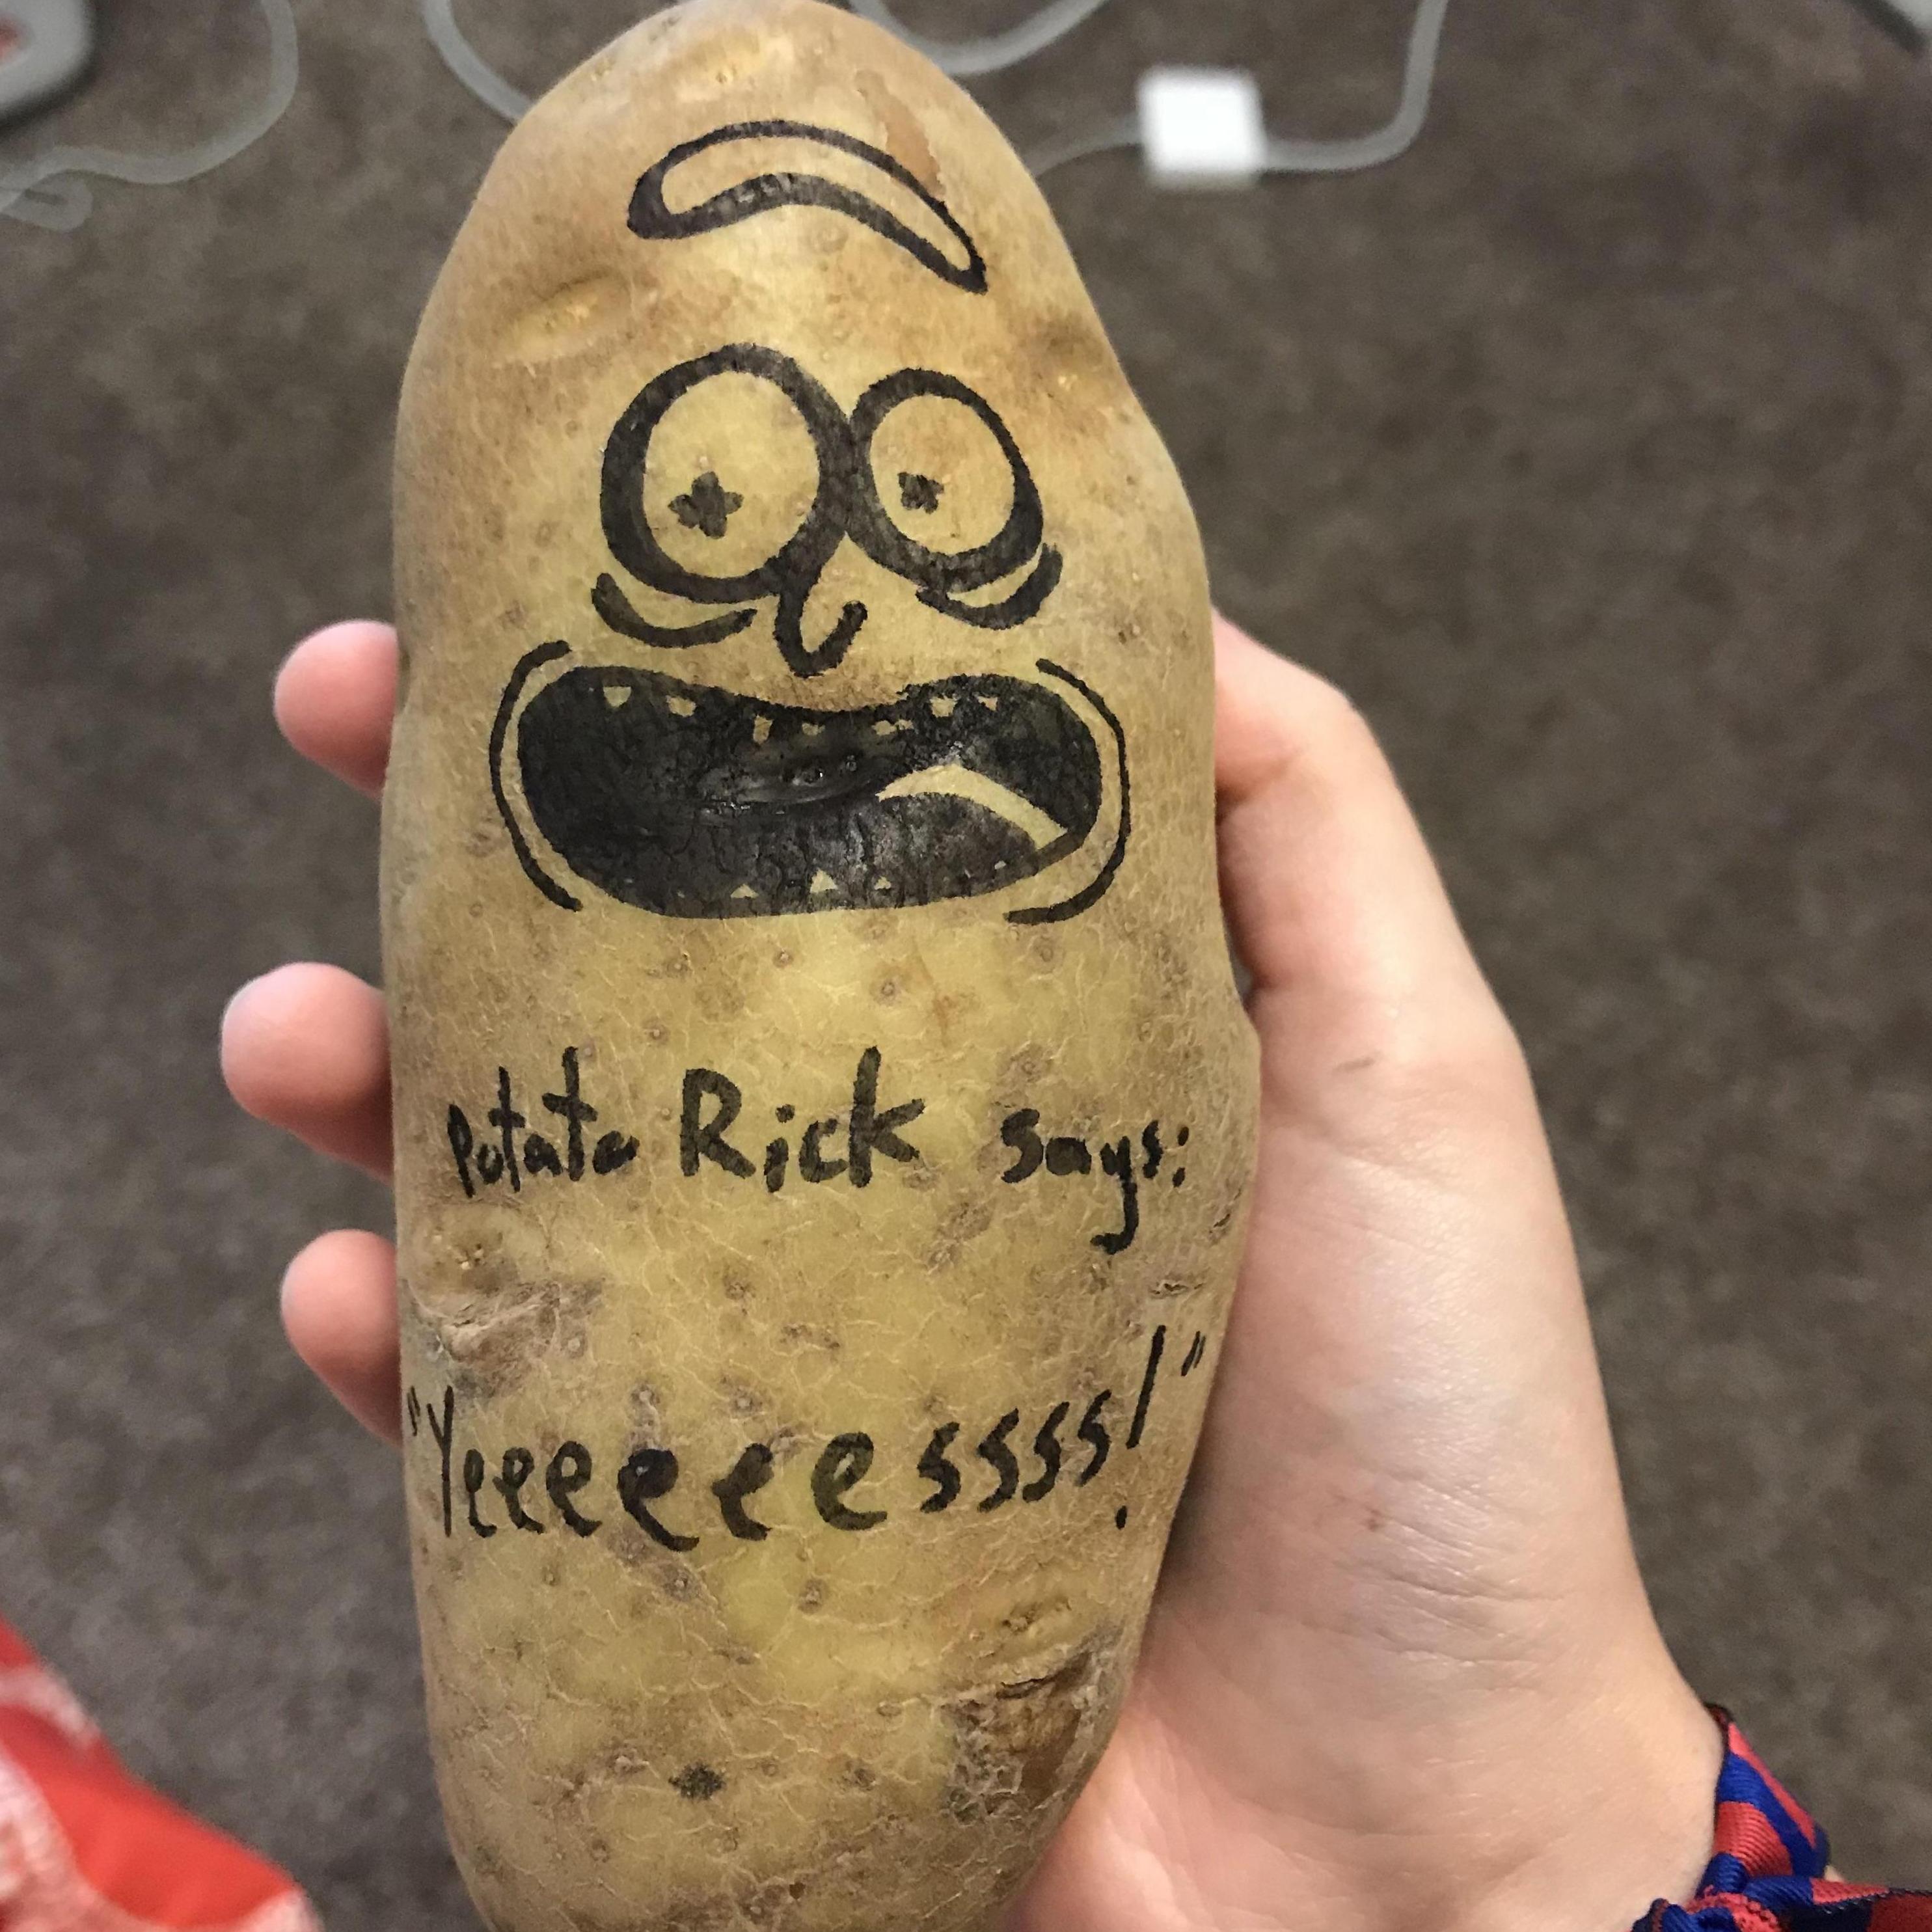 Potato Rick says:
"Yeeeeeessss!"